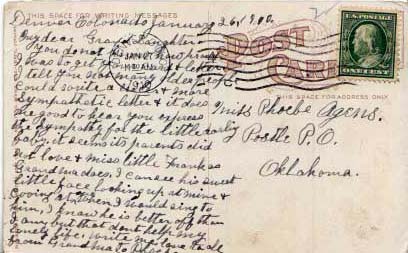 THIS SPACE FOR WRITING MESSAGES
Denver Colorado January 26/1910
My dear Grand Daughter
You do not know how proud
I was to get your letter
I tell you many older people
Could write a more
Sympathetic letter & it does
me good to hear you express
the sympathy for the little darling
baby, it seems its parents did
not love & miss little Frank as
Grandma does, I can see his sweet
little face looking up at mine &
going ah when I would sing to
him, I know he is better off than
I am but that dont help my
lonely life, write me love to all
from Grandma to Phoebe
POST CARD
THIS SPACE FOR ADDRESS ONLY
U.S. POSTAGE
ONE CENT
JAN 27
1910
Miss Phoebe Agens.
Postle P.O.
Oklahoma.